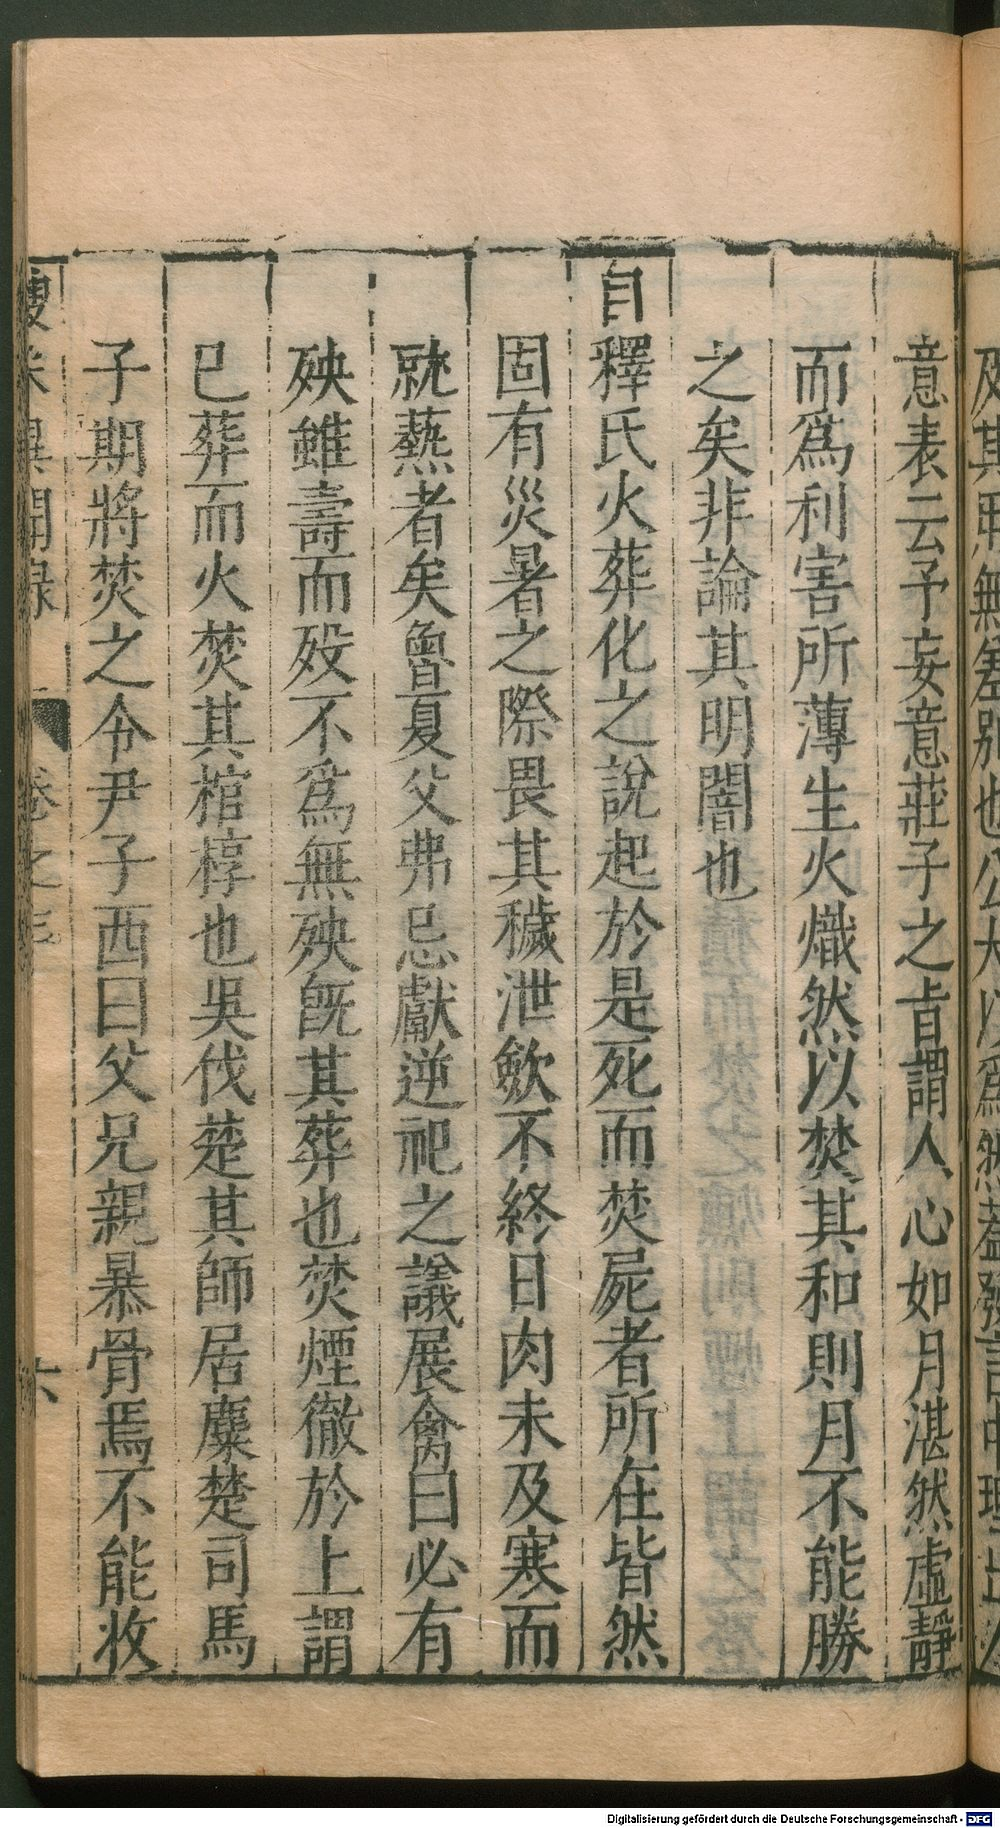 意表云予妄意莊子之㫖謂人心如月湛然虛靜
而爲利害所薄生火熾然以焚其和則月不能勝
之矣非論其明闇也
自釋氏火葬化之說起於是死而焚屍者所在皆然
固有災暑之際畏其穢泄斂不終日肉未及寒而
就爇者矣魯夏父弗忌獻逆祀之議展禽曰必有
殃雖壽而歿不爲無殃旣其葬也焚煙徹於上謂
已葬而火焚其棺椁也吳伐楚其師居麇楚司馬
子期將焚之令尹子西曰父兄親暴骨焉不能收
卷之三
六
Digitalisierung gefördert durch die Deutsche Forschungsgemeinschaft - DFG